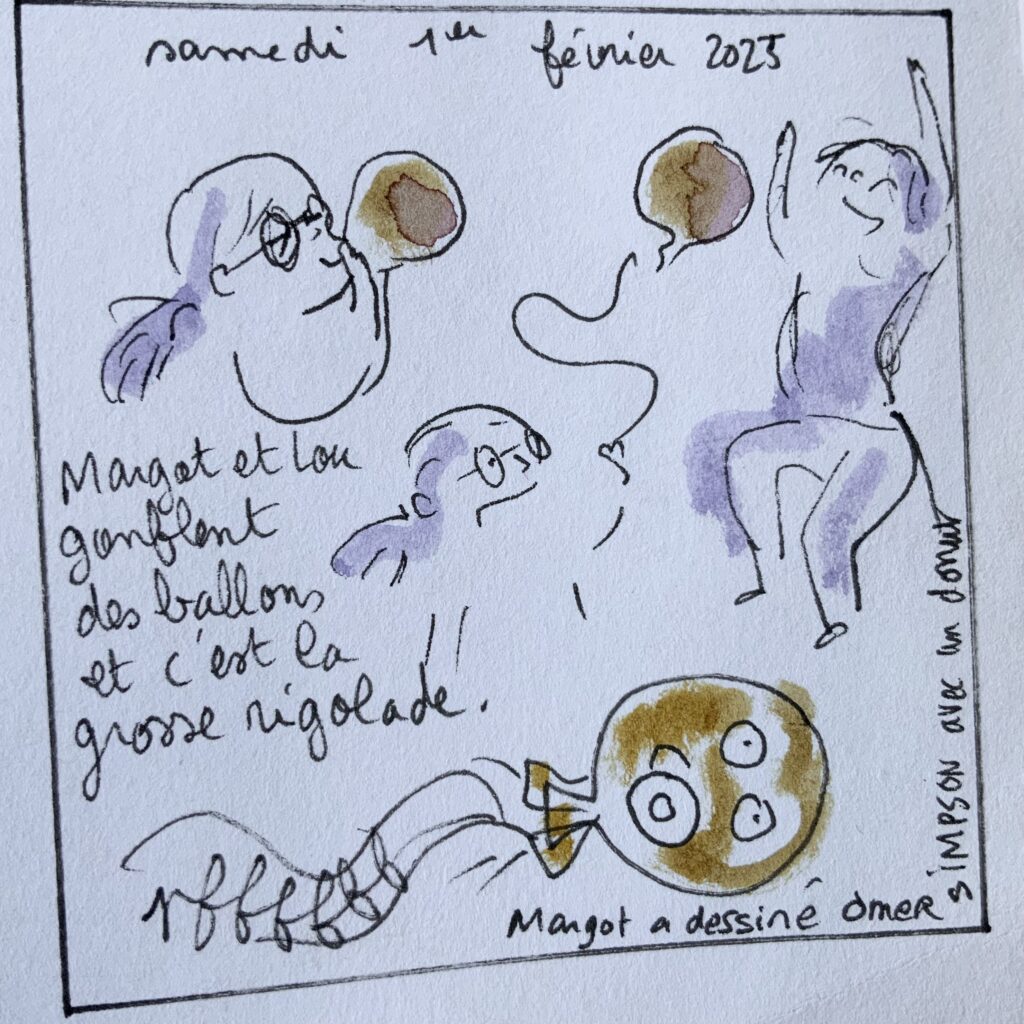 samedi 1er février 2025
Margot et Lou
gonflent
des ballons
et c'est la
grosse rigolade.
pffffff
Margot a dessiné Ômer
sIMPSON avec un donut